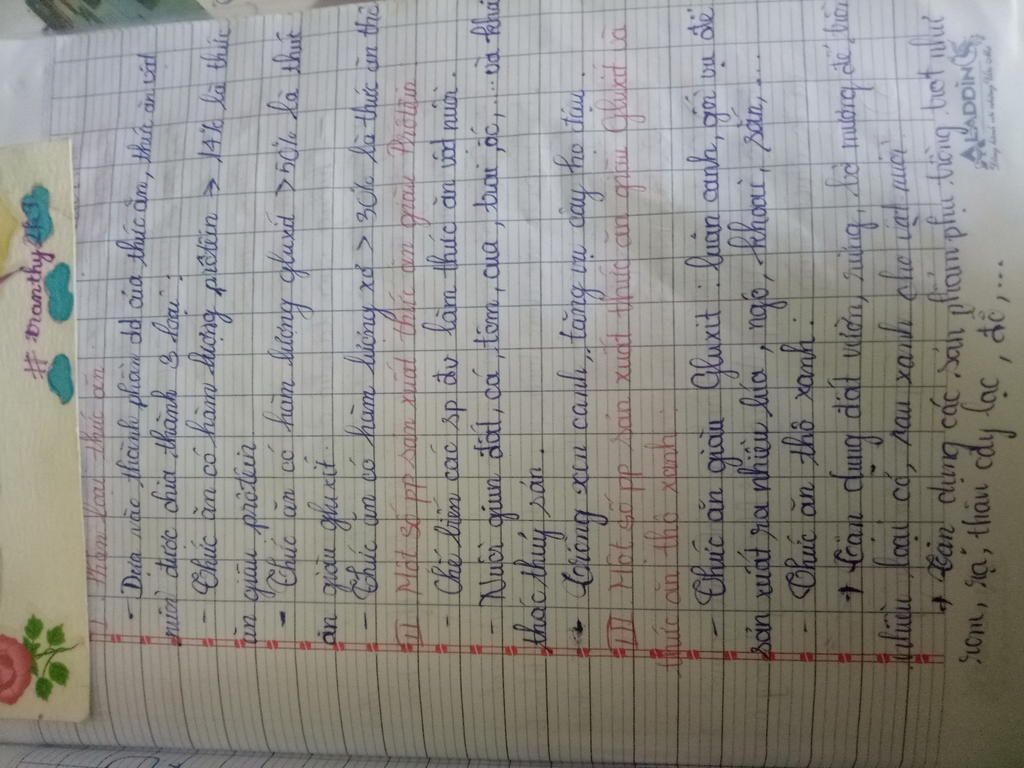 # xuanthy2k9
I Phân loại thức ăn
- Dựa vào thành phần dd của thức ăn, thức ăn vật
nuôi được chia thành 3 loại:
- Thức ăn có hàm lượng prôtêin > 14% là thức
ăn giàu prôtêin
- Thức ăn có hàm lượng gluxid > 50% là thức
ăn giàu gluxit.
- Thức ăn có hàm lượng xơ > 30% là thức ăn thô
II Một số pp sản xuất thức ăn giàu Prôtêin
- Chế biến các sp đv làm thức ăn vật nuôi.
- Nuôi giun đất, cá, tôm, cua, trai, ốc,.... và khai
thác thuỷ sản.
- Trồng xen canh, tăng vụ cây họ đậu.
III Một số pp sản xuất thức ăn giàu Gluxit và
thức ăn thô xanh.
- Thức ăn giàu Gluxit: luân canh, gối vụ để
sản xuất ra nhiều lúa, ngô, khoai, sắn,....
- Thức ăn thô xanh:
+ Tận dụng đất vườn, rừng, bờ mương để trồng
nhiều loại cỏ, rau xanh cho vật nuôi
+ Tận dụng các sản phẩm phụ trồng trọt như
rơm, rạ, thân cây lạc, đỗ,...
ALADDIN